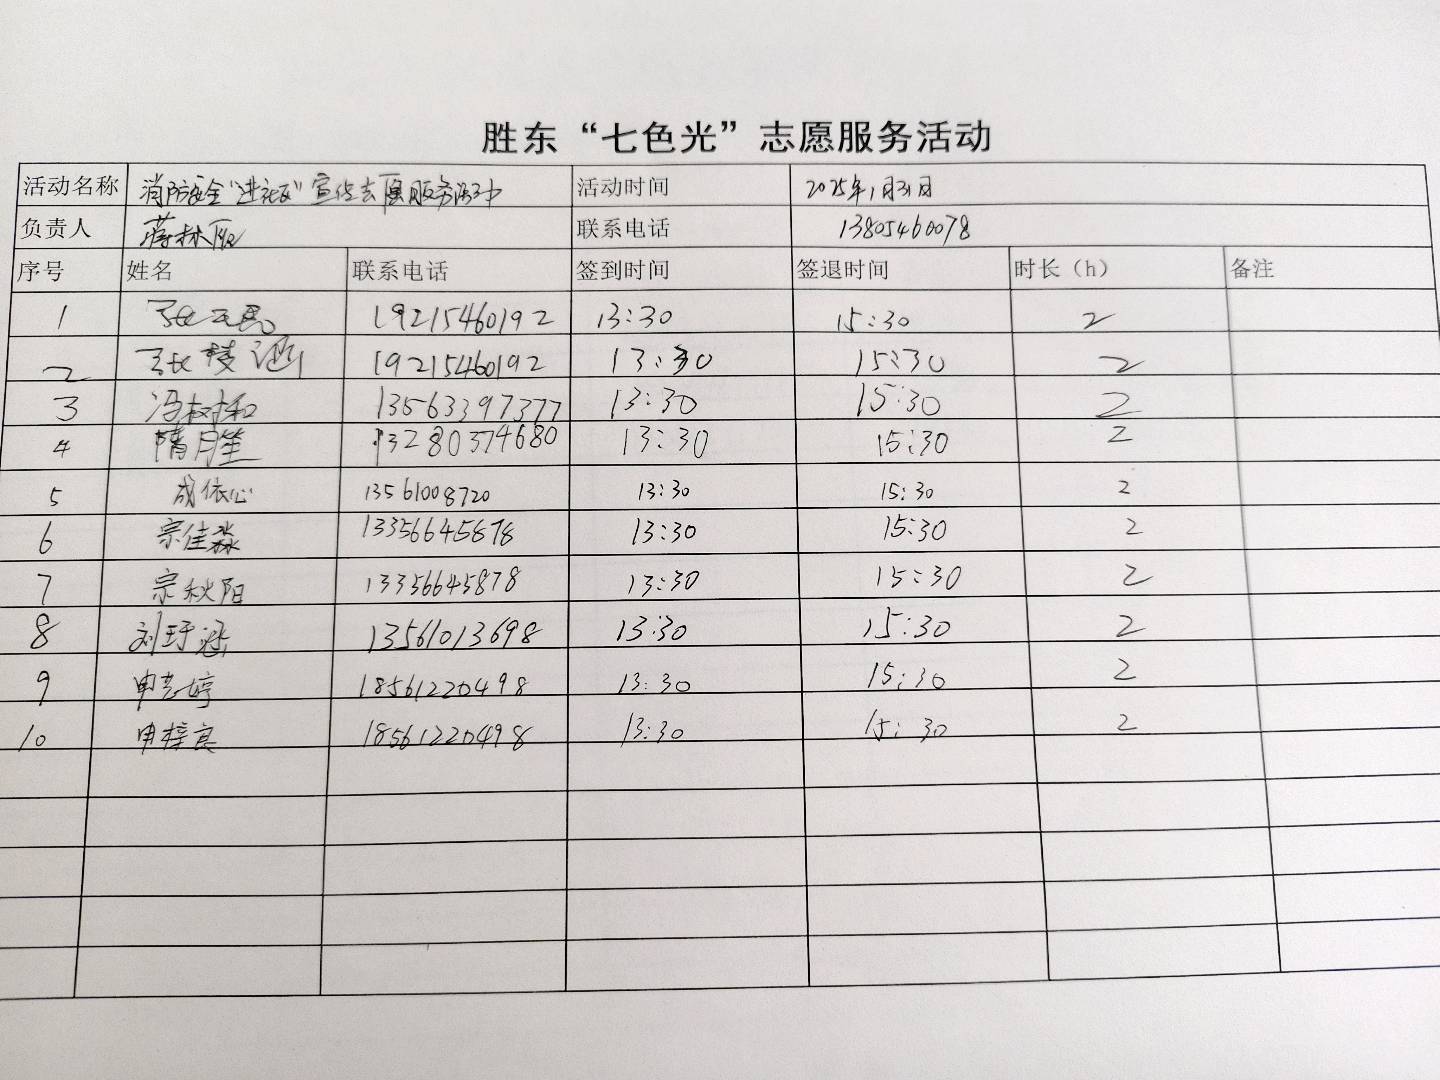 胜东“七色光”志愿服务活动
活动名称 消防安全“进社区”宣传志愿服务活动 活动时间 2025年1月31日
负责人 蒋林 联系电话 13805460078
序号 姓名 联系电话 签到时间 签退时间 时长（h） 备注
1 张 19215460192 13:30 15:30 2
2 张 涵 19215460192 13:30 15:30 2
3 冯树和 13563397377 13:30 15:30 2
4 隋月笙 13280374680 13:30 15:30 2
5 成依心 13561008720 13:30 15:30 2
6 宗佳淼 13356645878 13:30 15:30 2
7 宗秋阳 13356645878 13:30 15:30 2
8 刘玗涵 13561013698 13:30 15:30 2
9 申 婷 18561220498 13:30 15:30 2
10 申梓良 18561220498 13:30 15:30 2